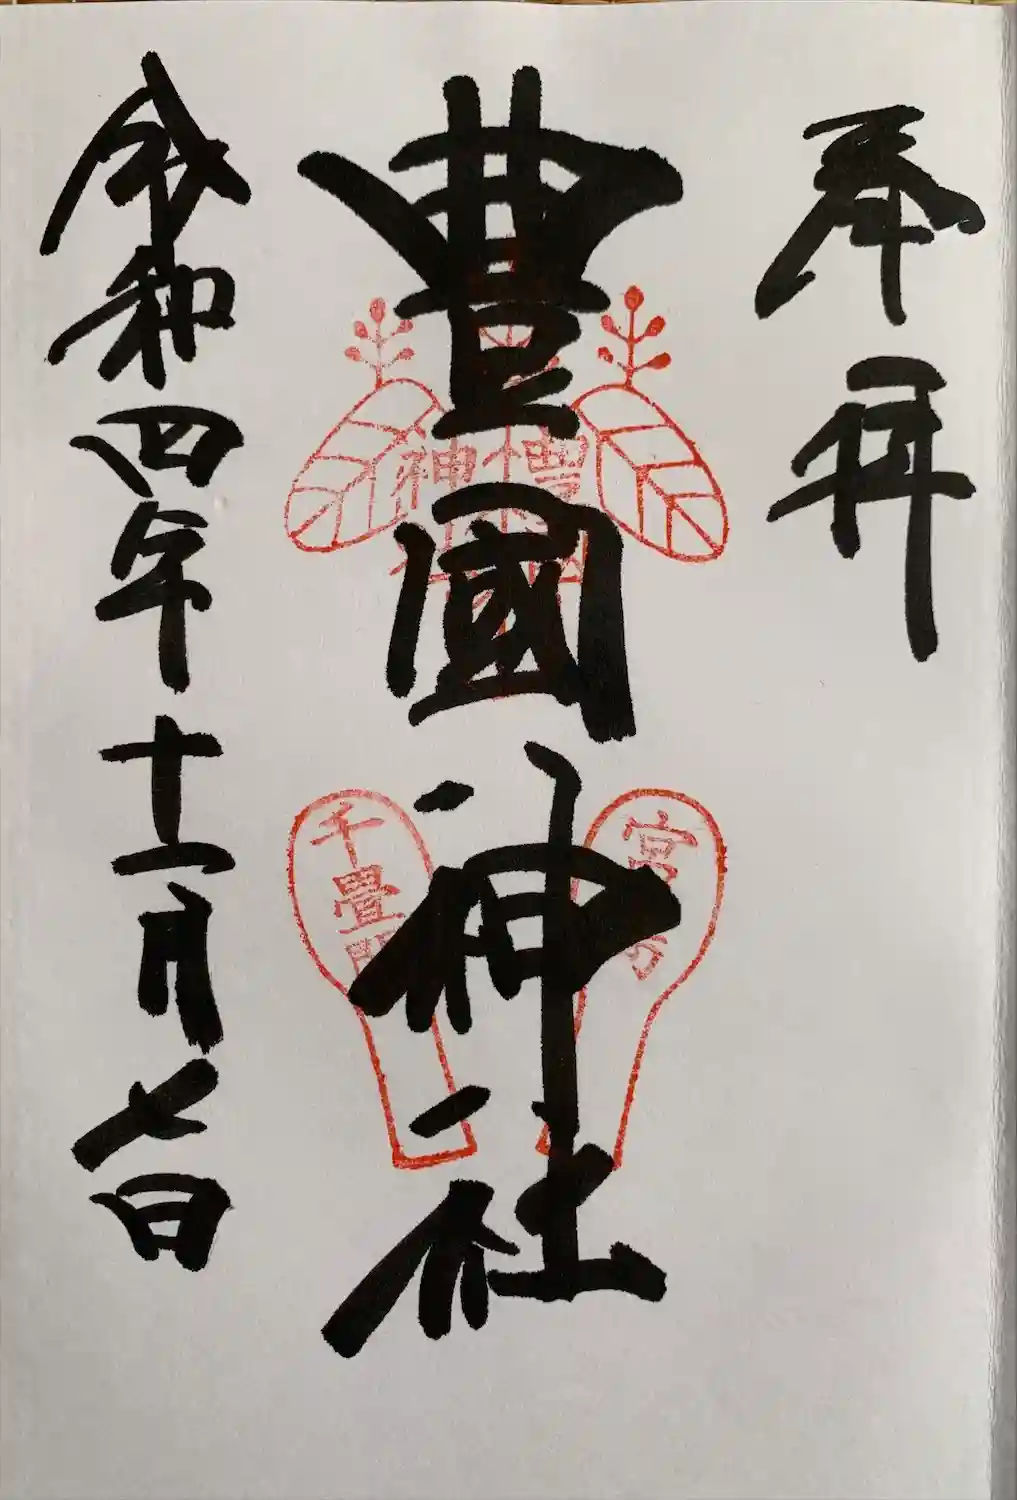 奉拝
豊國神社
令和四年十一月七日
千畳閣
宮